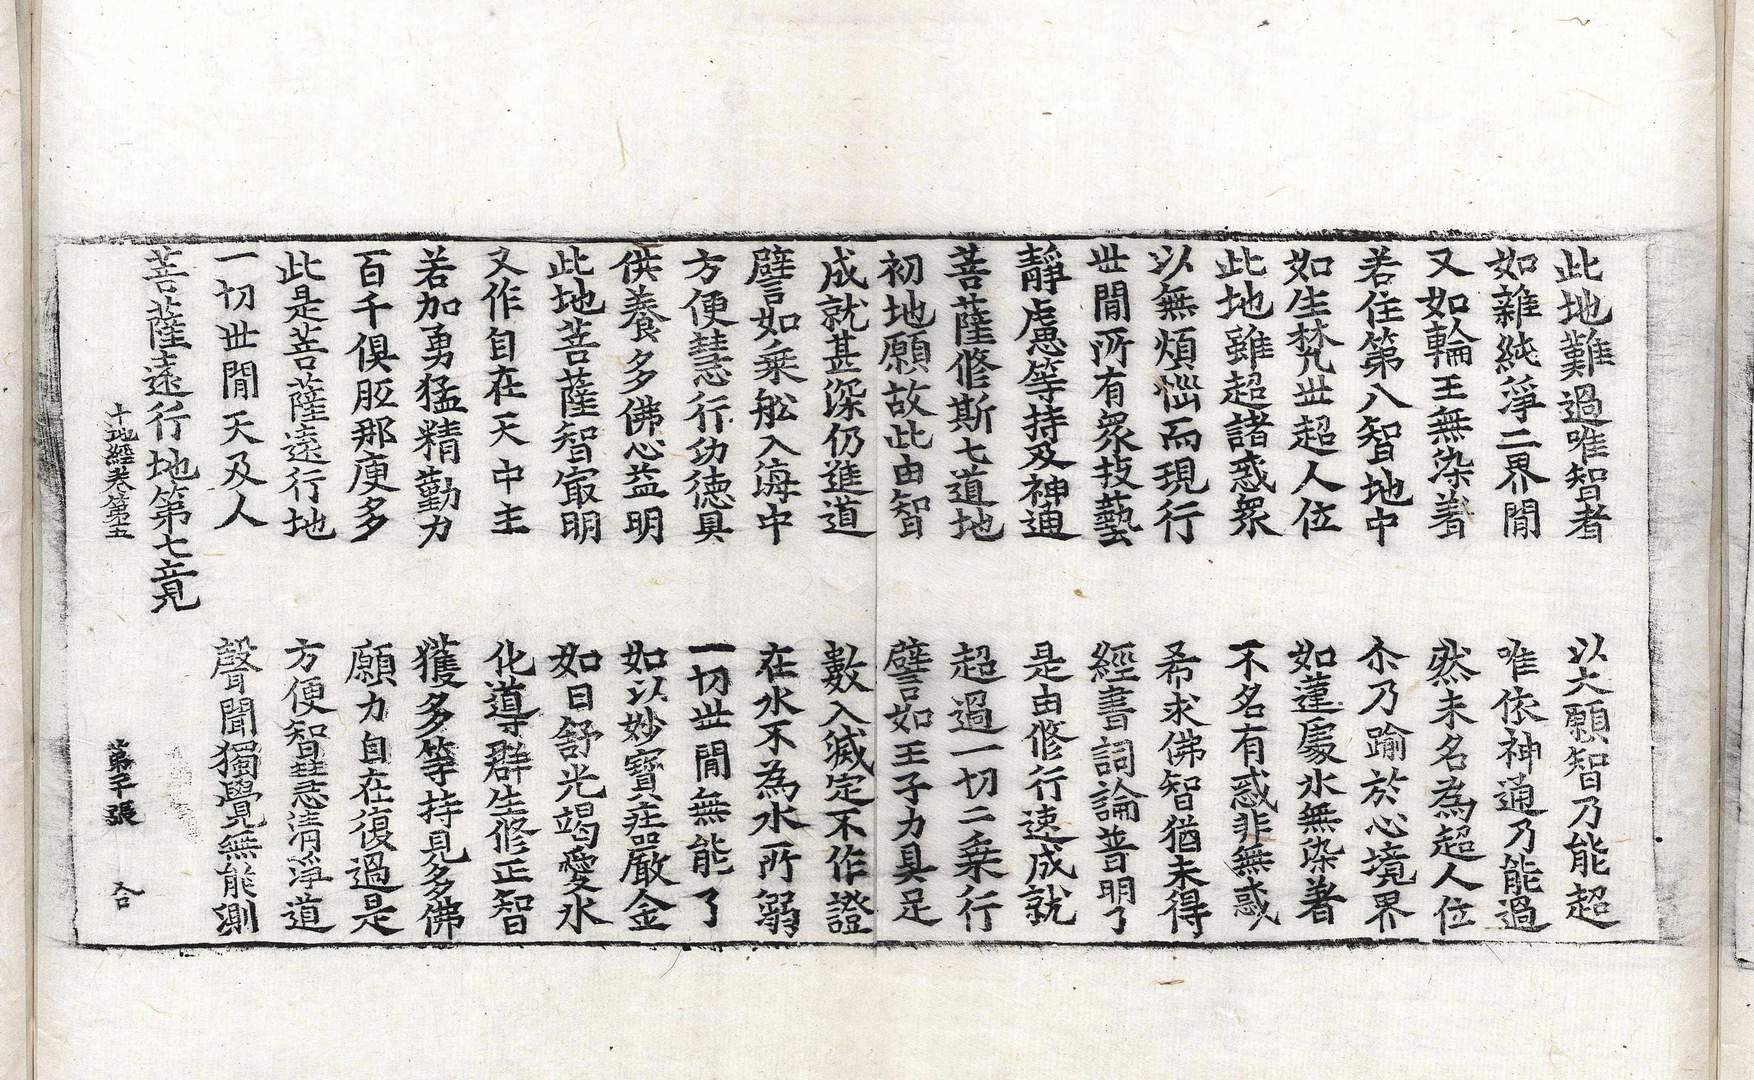 此地難過唯智者　以大願智乃能超
如雜純淨二界閒　唯依神通乃能過
又如輪王無染著　然未名為超人位
若住第八智地中　尒乃踰於心境界
如生梵世超人位　如蓮處水無染著
此地雖超諸惑衆　不名有惑非無惑
以無煩惱而現行　希求佛智猶未得
世閒所有衆技藝　經書詞論普明了
靜慮等持及神通　是由修行速成就
菩薩修斯七道地　超過一切二乗行
初地願故此由智　譬如王子力具足
成就甚深仍進道　數入滅定不作證
譬如乗舩入海中　在水不為水所溺
方便慧行功德具　一切世閒無能了
供養多佛心益明　如以妙寶莊嚴金
此地菩薩智㝡明　如日舒光竭愛水
又作自在天中主　化導群生修正智
若加勇猛精勤力　獲多等持見多佛
百千俱胝那庾多　願力自在復過是
此是菩薩遠行地　方便智慧清淨道
一切世閒天及人　聲聞獨覺無能測
菩薩遠行地第七竟
十地經卷第五　第　張　合